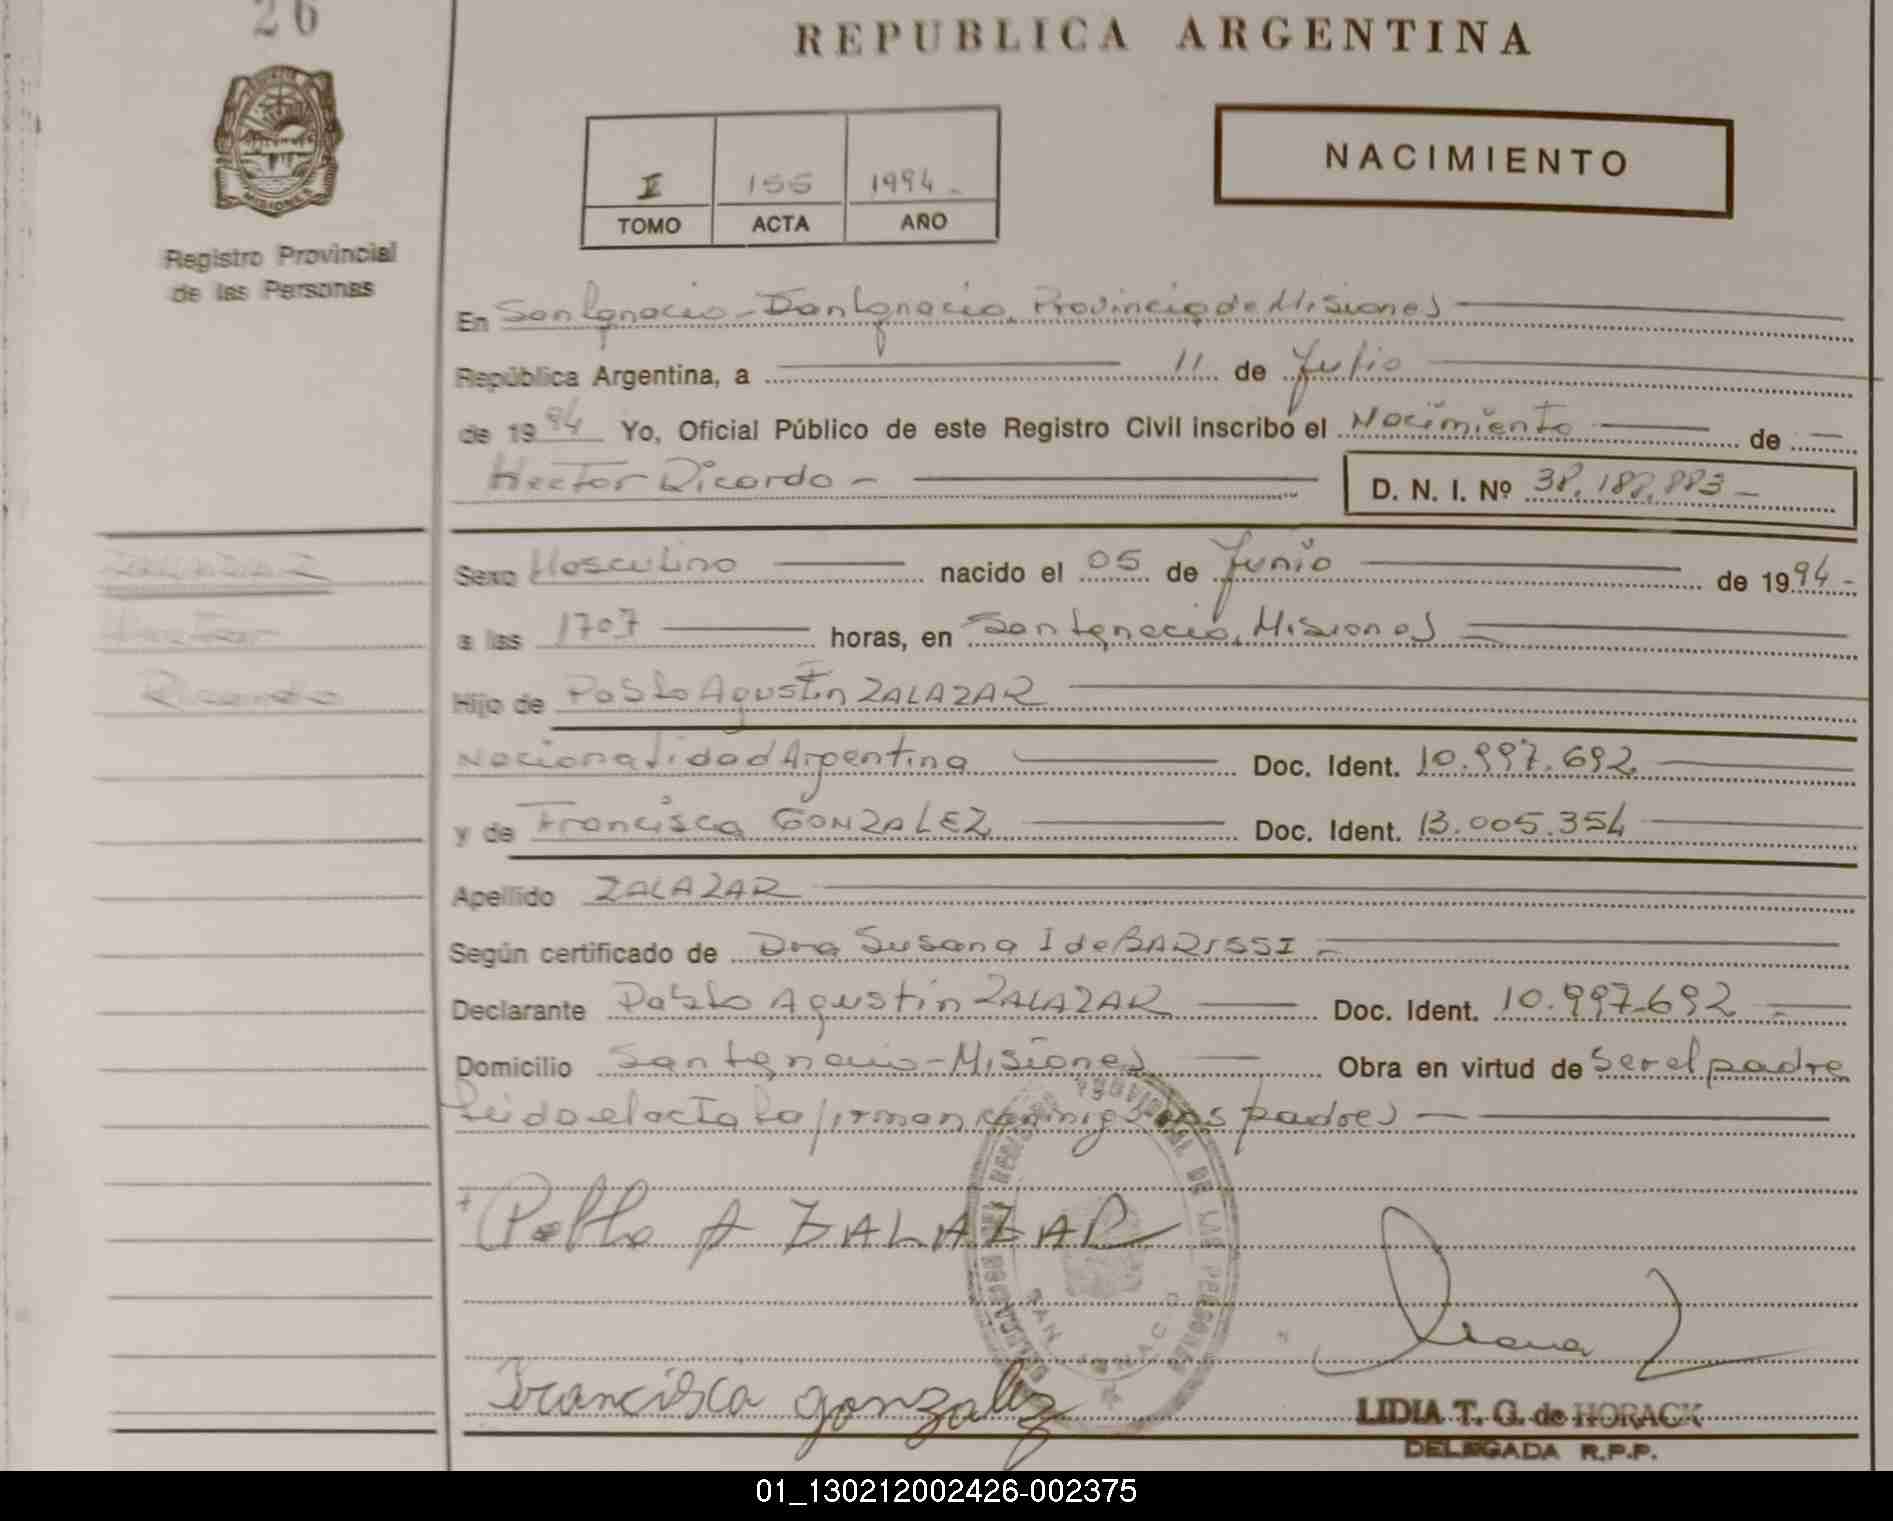 26
REPUBLICA ARGENTINA
MISIONES
Registro Provincial
de las Personas
NACIMIENTO
II 155 1994 -
TOMO ACTA AÑO
En San Ignacio - San Ignacio, Provincia de Misiones
República Argentina, a 11 de Julio
de 1994 Yo, Oficial Público de este Registro Civil inscribo el Nacimiento de
Hector Ricardo - D. N. I. Nº 38.188.883 -
ZALAZAR
Hector
Ricardo
Sexo Masculino nacido el 05 de Junio de 1994 -
a las 1707 horas, en San Ignacio, Misiones
Hijo de Pablo Agustin ZALAZAR
Nacionalidad Argentina Doc. Ident. 10.997.692
y de Francisca GONZALEZ Doc. Ident. 13.005.354
Apellido ZALAZAR
Según certificado de Dra Susana I de BARISSI -
Declarante Pablo Agustin ZALAZAR Doc. Ident. 10.997.692 -
Domicilio San Ignacio - Misiones Obra en virtud de Ser el padre
Leida el acta la firman conmigo los padres -
Pablo A ZALAZAR
Francisca gonzalez
DE LAS PERSONAS
SAN IGNACIO
LIDIA T. G. de HORACK
DELEGADA R.P.P.
01_130212002426-002375